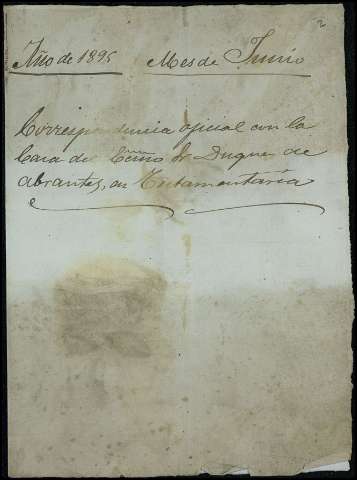 2
Año de 1895 Mes de Junio
Correspondencia oficial con la
Casa del Exmo Sr Duque de
Abrantes, su Testamentaría